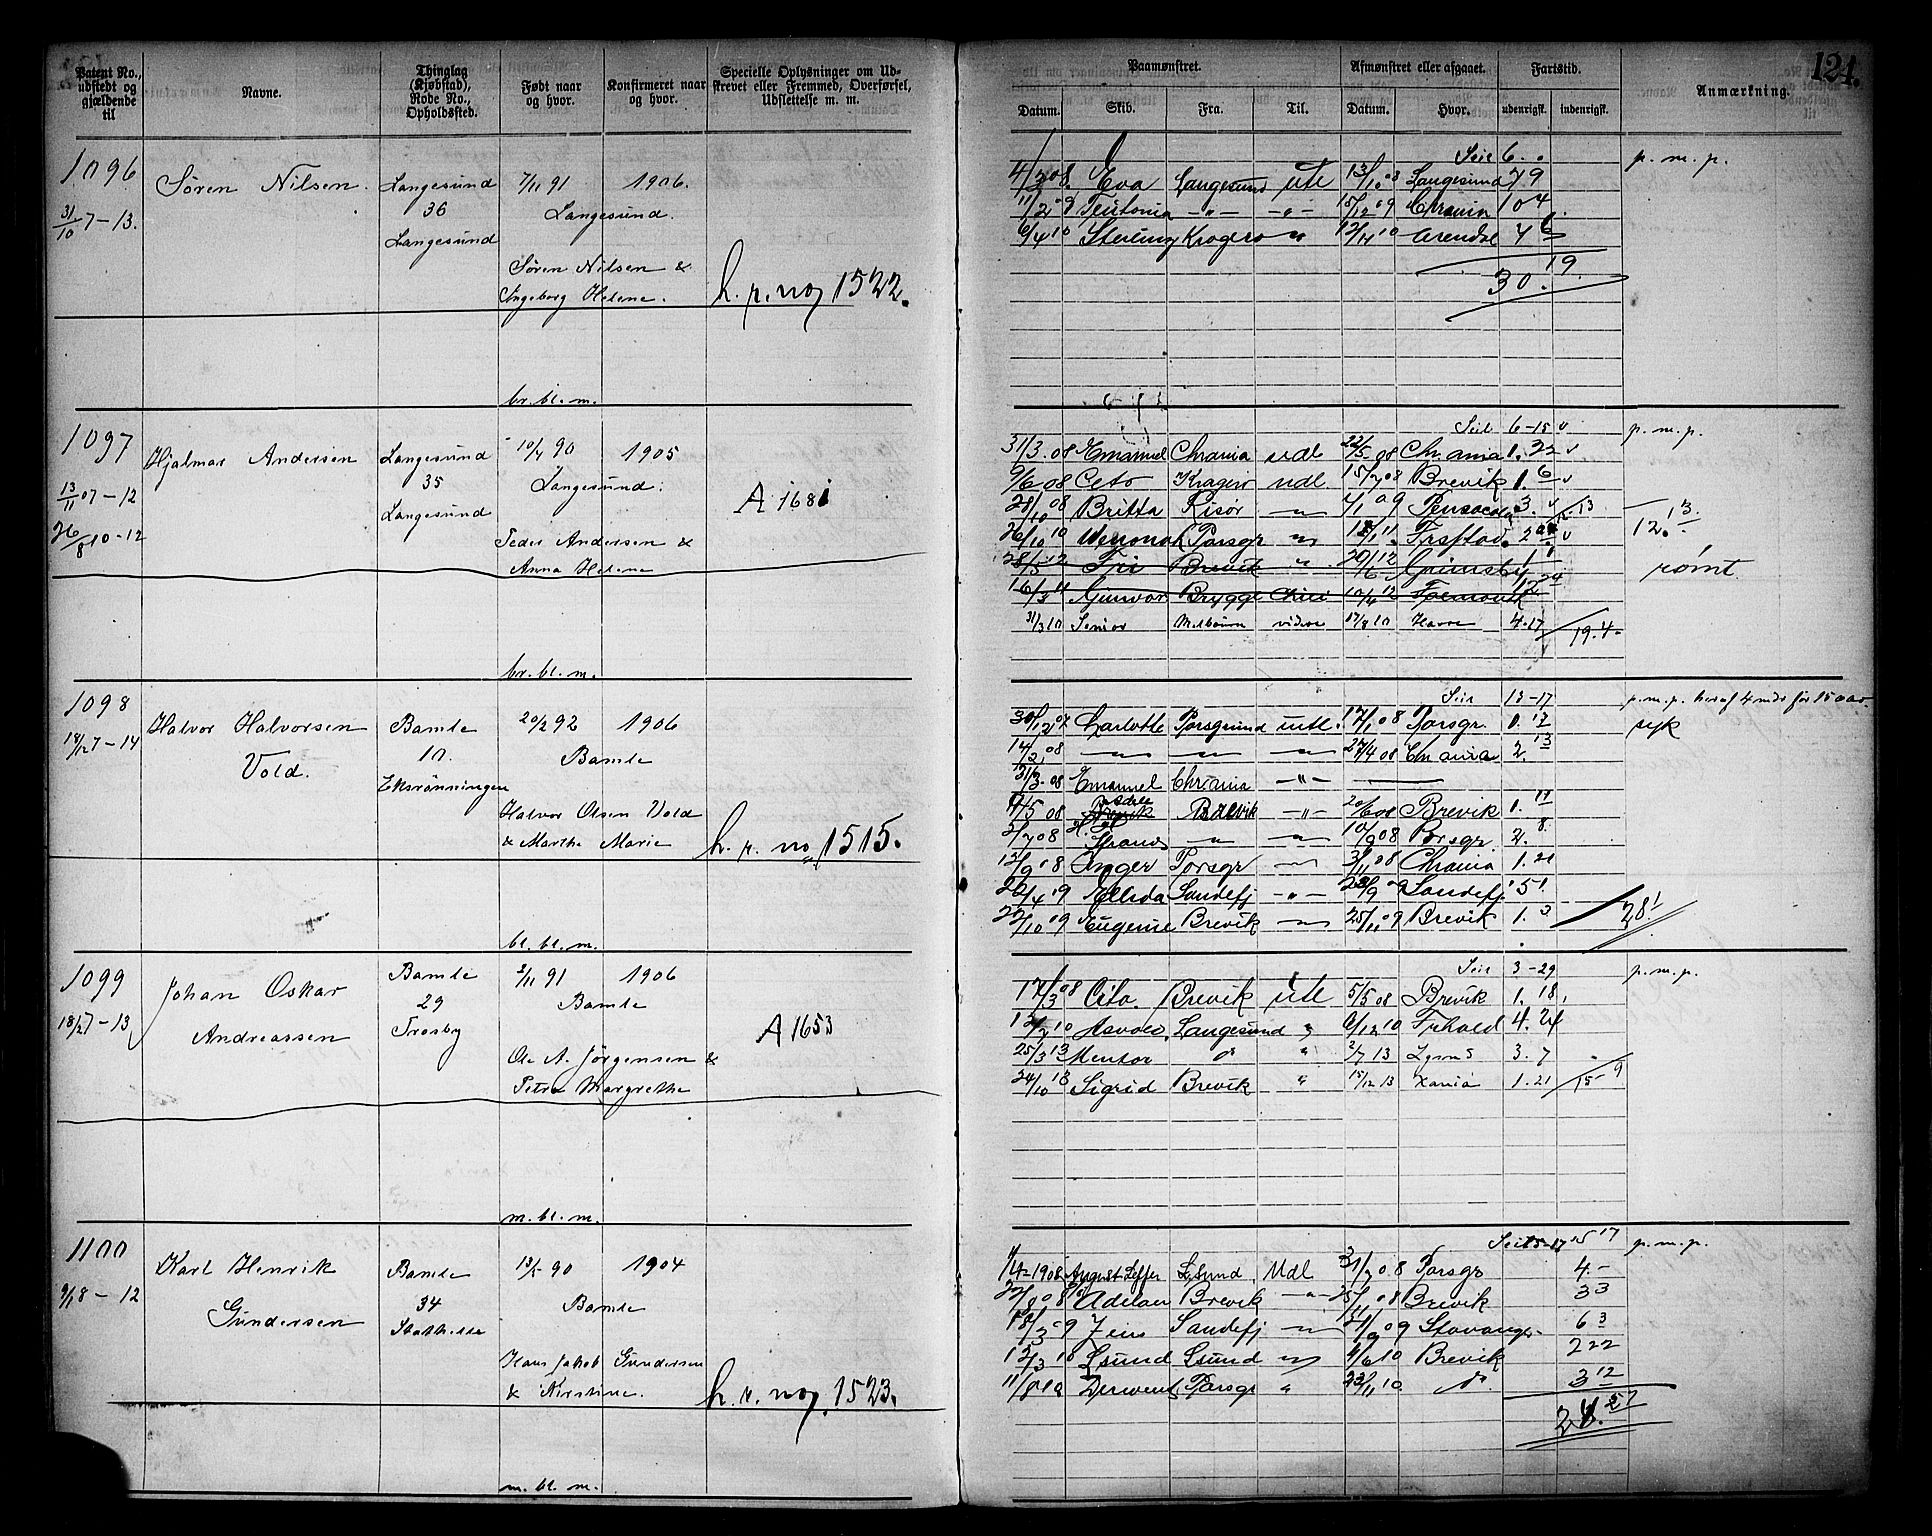 124.
Patent No., udstedt og gjældende til
Navne.
Thinglag (Kjøbstad), Rode No., Opholdssted.
Født naar og hvor.
Konfirmeret naar og hvor.
Specielle Oplysninger om Udskrevet eller Fremmed, Overførsel, Udslettelse m. m.
Paamønstret.
Afmønstret eller afgaaet.
Fartstid.
Anmærkning.
Datum.
Skib.
Fra.
Til.
Datum.
Hvor.
udenrigsk.
indenrigsk.
1096
31/10 7 - 13.
Søren Nilsen.
Langesund
36
Langesund
7/11 91
1906.
Langesund.
Søren Nilsen &
Ingeborg Helene.
h. p. no, 1522.
br. bl. m.
Seil 6. p. m. p.
4/3 08. Eva Langesund ute 13/10 08 Langesund 7 9
11/2 09 Teutonia -"- -"- 15/12 09 Chrania 10 4.
6/4 10 Sterling Kragerø " 12/11 10 Arendal 7 6
30. 19.
1097
13/11 07 - 12
26/8 10 - 12
Hjalmar Andersen
Langesund
35
Langesund
10/4 90
1905
Langesund.
Peder Andersen &
Anna Helene
A 1681
br. bl. m.
Seil 6-15 v p. m. p.
31/3. 08 Emanuel Chrania udl 22/5 08 Chrania 1. 22 v
9/6 08 Ceto Kragerø udl. 15/7 08 Brevik 1. 6 v
28/10 08 Britta Risør " 4/1 09 Pensacola 3.
26/10 10 Wenonah Porsgr " 18/11. Frstad.
12. 13.
28/5 12 Fri Brevik " 20/6 12 Grimsby
rømt.
16/3 11 Gunvor Brygge 10/4 12
31/3 10 Senior Melbourn videre 17/8 10 Havre 4. 17 19. 4.
1098
18/12 7 - 14
Halvor Halvorsen
Vold.
Bamle
10.
Eksrønningen
20/2 92
1906
Bamle
Halvor Olsen Vold
& Marthe Marie
h. p. no, 1515.
bl. bl. m.
Seil 13-17 p. m. p. heraf 4 mdr før 15 aar.
30/12 07 Charlotte Porsgrund utl. 17/1 08 Porsgr. 0. 17 syk
14/2 08 " " " 27/4 08 Chrania 2. 13
31/3. 08 Emanuel Chrania -"-
Brevik -"- 20/6 08 Brevik 1.
2/7 08 Strands " " 10/9 08 Porsgr. 2. 8.
12/9 08 Inger Porsgr " 3/11 08 Chrania 1. 21
22/4 09 Ellida Sandefj -"- 23/9 09 Sandefj. 5 1.
22/10 09 Eugenie Brevik " 25/11 09 Brevik 1. 3 28 1
1099
18/12 7 - 13
Johan Oskar
Andreassen
Bamle
29
Trosby
2/11 91
1906
Bamle
Ole A. Jørgensen &
Petra Margrethe
A 1653
m. bl. m.
Seil 3-29 p. m. p.
17/3 08 Ceto. Brevik ute 5/5 08 Brevik 1. 18.
Langesund " 6/12 10 Frhald 4. 24
25/3 13 Mentor do " 2/7 13 3. 7
24/10 13 Sigrid Brevik " 15/12 13 Xania 1. 21 15 - 9
1100
9/1 8 - 12
Karl Henrik
Gundersen
Bamle
34
Stathelle
13/5 90
1904
Bamle
Hans Jakob Gundersen
& Kirstine.
h. p. no, 1523.
m. bl. m.
Seil p. m. p.
11/4 - 1908 August Leffer Lsund. Udl 31/7 08 Porsgr 4. -
22/8 08 Brevik -"- 25/11 08 Brevik 3 3
18/3 09 Zeus Sandefj " 21/9 09 Stavanger 6 3
12/3 10 Lsund Lsund " 4/6 10 Brevik 2 22
11/8 10 Derwent Porsgr " 23/11 10 do. 3 12